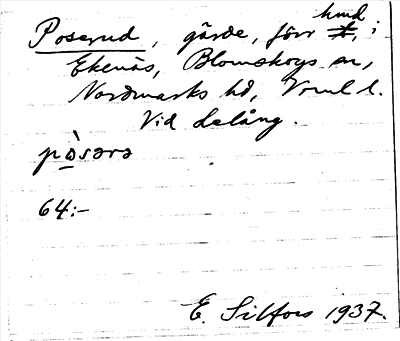 Poserud, gärde, förr hmd, i
Ekenäs, Blomskogs sn,
Nordmarks hd, Vrml l.
Vid Lelång.
pòsərə
64:-
E. Silfors 1937.